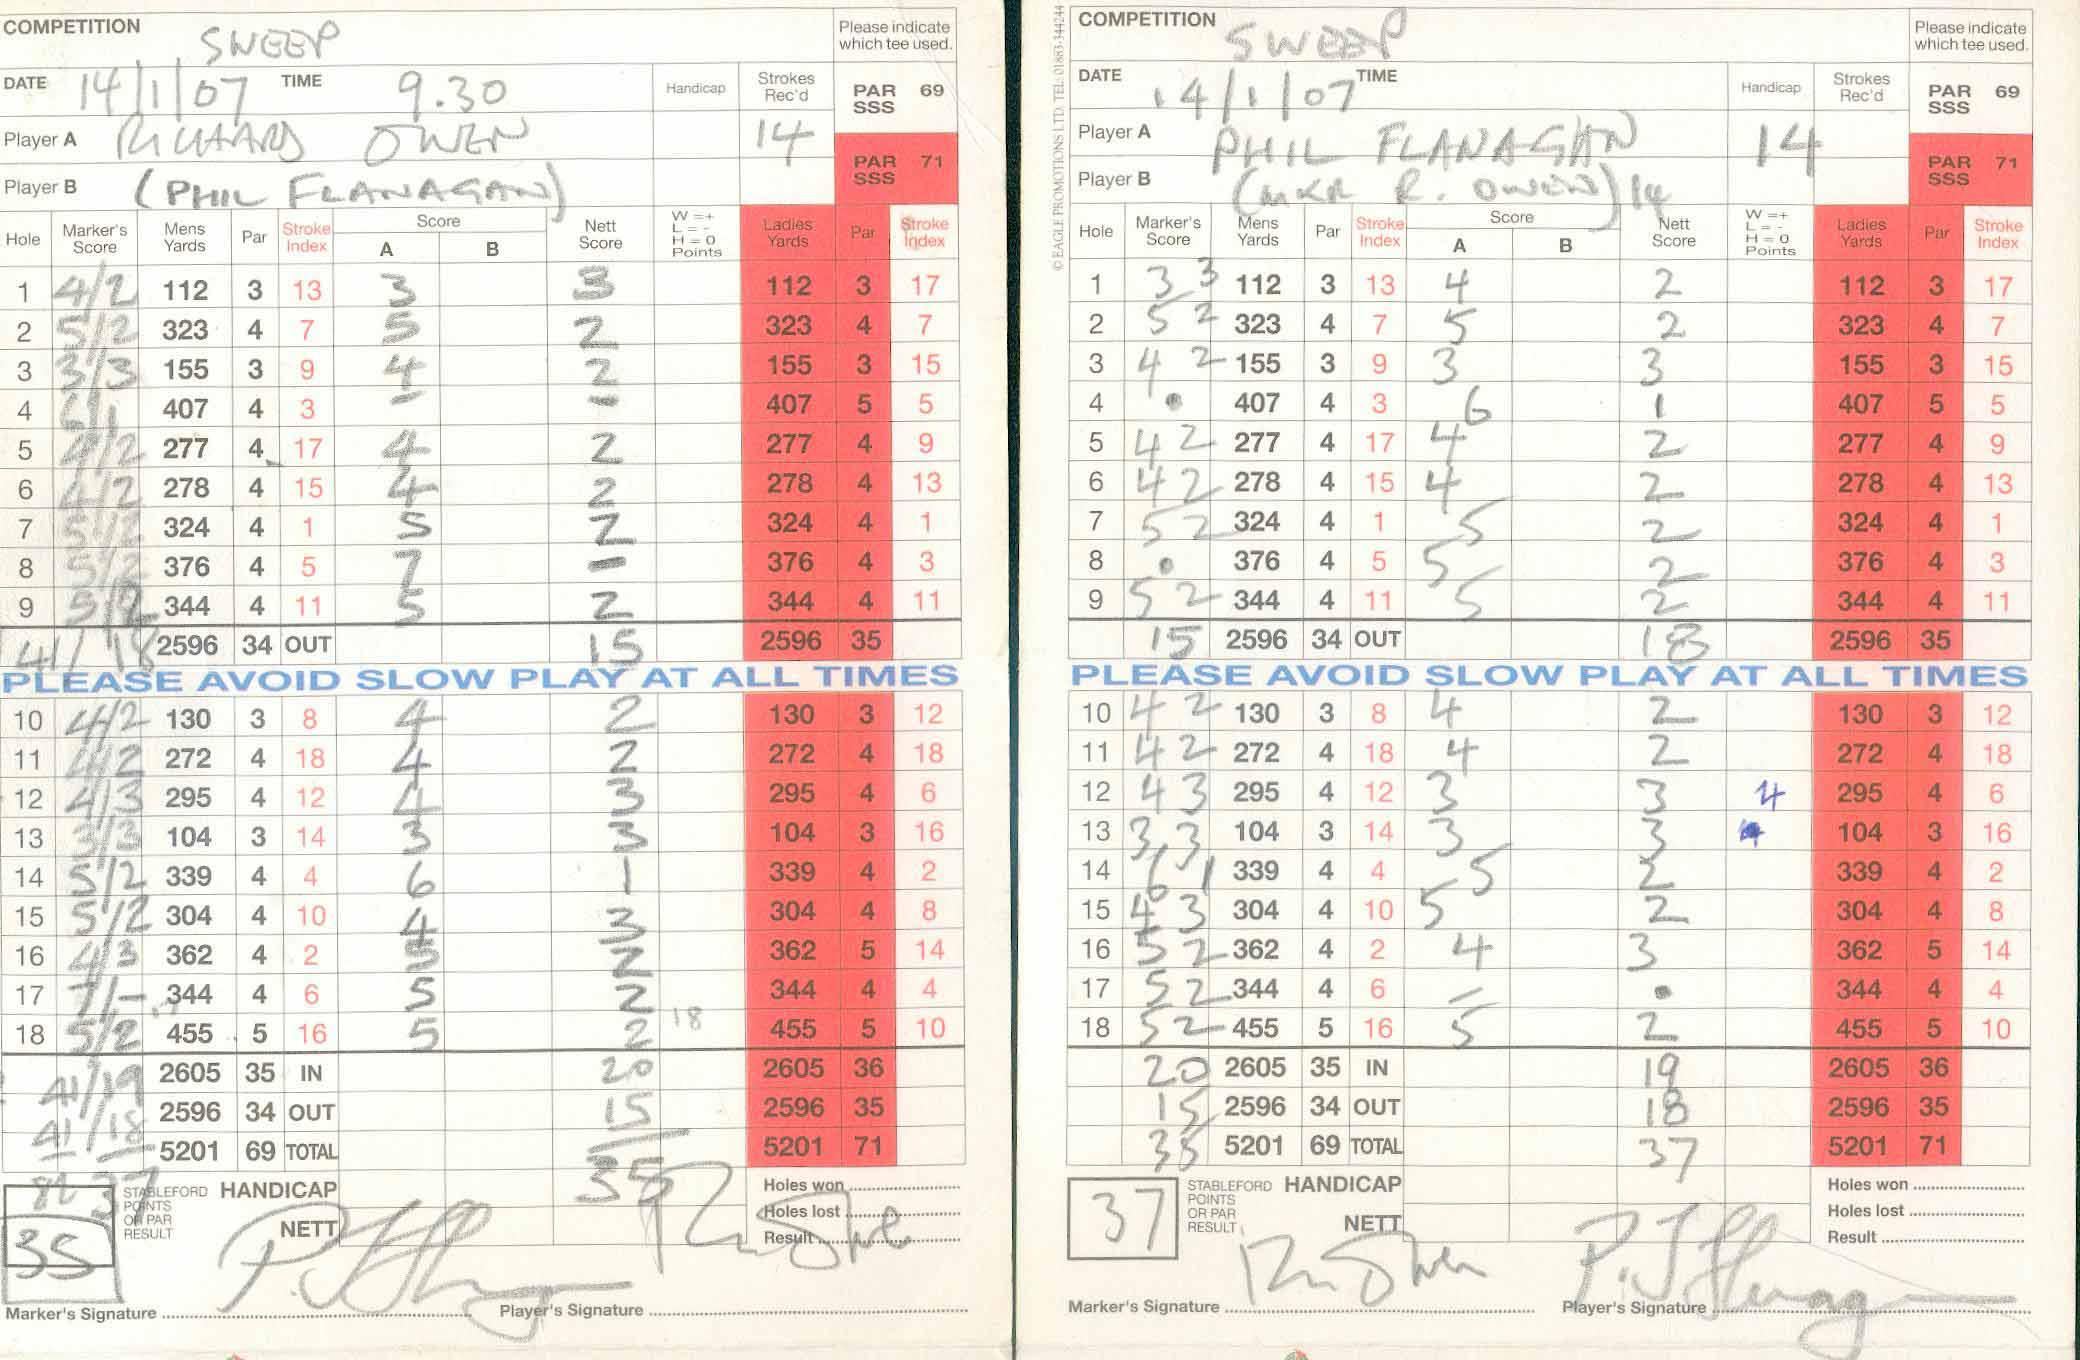 COMPETITION SWEEP Please indicate which tee used.
DATE 14/1/07 TIME 9.30 Handicap Strokes Rec'd PAR 69 SSS
Player A RICHARD OWEN 14 PAR 71 SSS
Player B (PHIL FLANAGAN)
Hole Marker's Score Mens Yards Par Stroke Index Score A B Nett Score W=+ L=- H=0 Points Ladies Yards Par Stroke Index
1 4/2 112 3 13 3 3 112 3 17
2 5/2 323 4 7 5 2 323 4 7
3 3/3 155 3 9 4 2 155 3 15
4 6/1 407 4 3 - - 407 5 5
5 4/2 277 4 17 4 2 277 4 9
6 4/2 278 4 15 4 2 278 4 13
7 5/2 324 4 1 5 2 324 4 1
8 5/2 376 4 5 7 - 376 4 3
9 5/2 344 4 11 5 2 344 4 11
41/18 2596 34 OUT 15 2596 35
PLEASE AVOID SLOW PLAY AT ALL TIMES
10 4/2 130 3 8 4 2 130 3 12
11 4/2 272 4 18 4 2 272 4 18
12 4/3 295 4 12 4 3 295 4 6
13 3/3 104 3 14 3 3 104 3 16
14 5/2 339 4 4 6 1 339 4 2
15 5/2 304 4 10 4 3 304 4 8
16 4/3 362 4 2 5 2 362 5 14
17 7/- 344 4 6 5 2 344 4 4
18 5/2 455 5 16 5 2 18 455 5 10
41/19 2605 35 IN 20 2605 36
41/18 2596 34 OUT 15 2596 35
5201 69 TOTAL 35 5201 71
82 37 STABLEFORD POINTS OR PAR RESULT HANDICAP Holes won
35 NETT Holes lost
Result
Marker's Signature Player's Signature
© EAGLE PROMOTIONS LTD. TEL: 01883-344244
COMPETITION SWEEP Please indicate which tee used.
DATE 14/1/07 TIME Handicap Strokes Rec'd PAR 69 SSS
Player A PHIL FLANAGAN 14 PAR 71 SSS
Player B (MKR R. OWEN) 14
Hole Marker's Score Mens Yards Par Stroke Index Score A B Nett Score W=+ L=- H=0 Points Ladies Yards Par Stroke Index
1 3 3 112 3 13 4 2 112 3 17
2 5 2 323 4 7 5 2 323 4 7
3 4 2 155 3 9 3 3 155 3 15
4 • 407 4 3 6 1 407 5 5
5 4 2 277 4 17 4 2 277 4 9
6 4 2 278 4 15 4 2 278 4 13
7 5 2 324 4 1 5 2 324 4 1
8 • 376 4 5 5 2 376 4 3
9 5 2 344 4 11 5 2 344 4 11
15 2596 34 OUT 18 2596 35
PLEASE AVOID SLOW PLAY AT ALL TIMES
10 4 2 130 3 8 4 2 130 3 12
11 4 2 272 4 18 4 2 272 4 18
12 4 3 295 4 12 3 3 4 295 4 6
13 3 3 104 3 14 3 3 104 3 16
14 6 1 339 4 4 5 2 339 4 2
15 4 3 304 4 10 5 2 304 4 8
16 5 2 362 4 2 4 3 362 5 14
17 5 2 344 4 6 - • 344 4 4
18 5 2 455 5 16 5 2 455 5 10
20 2605 35 IN 19 2605 36
15 2596 34 OUT 18 2596 35
35 5201 69 TOTAL 37 5201 71
37 STABLEFORD POINTS OR PAR RESULT HANDICAP Holes won
NETT Holes lost
Result
Marker's Signature Player's Signature